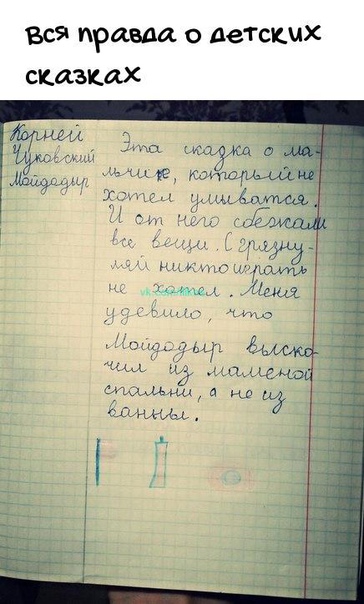 Вся правда о детских
сказках
Корней
Чуковский
Мойдодыр
Эта сказка о ма-
льчике, который не
хотел умыватся.
И от него сбежали
все вещи. С грязну-
лей никто играть
не хотел. Меня
удевило, что
Мойдодыр выско-
чил из маменой
спальни, а не из
ванны.